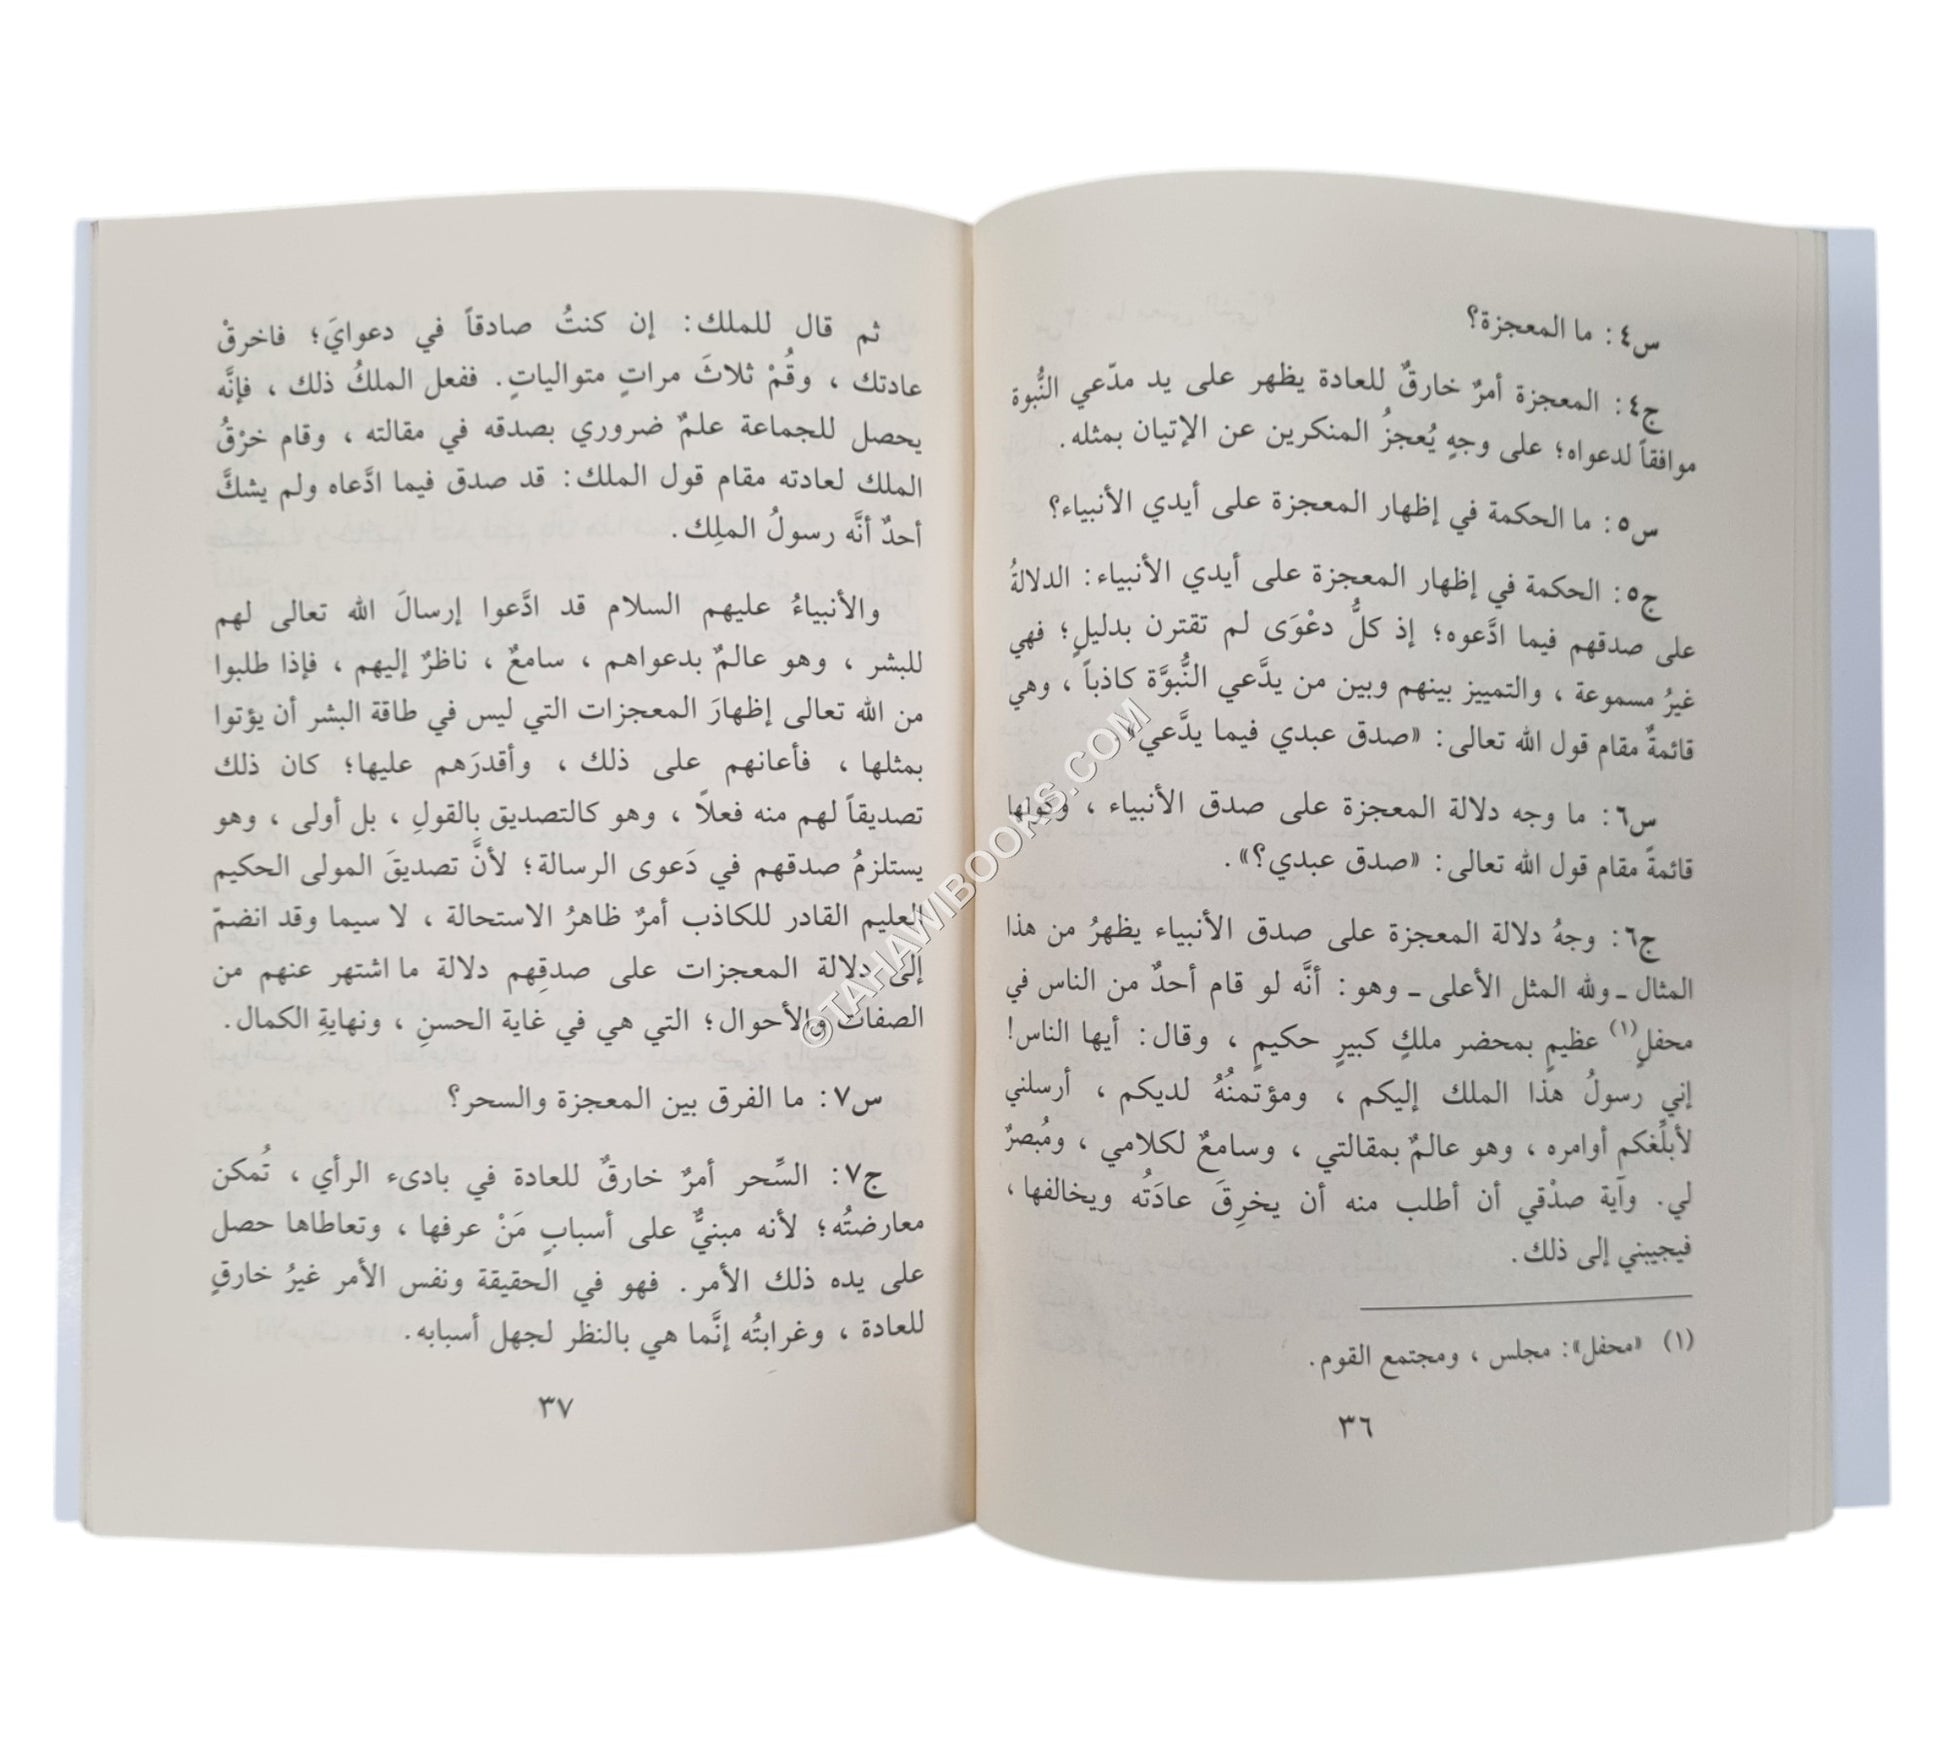 س٤: ما المعجزة؟
ج٤: المعجزة أمرٌ خارقٌ للعادة يظهر على يد مدّعي النُّبوة
موافقاً لدعواه؛ على وجهٍ يُعجزُ المنكرين عن الإتيان بمثله.
س٥: ما الحكمة في إظهار المعجزة على أيدي الأنبياء؟
ج٥: الحكمة في إظهار المعجزة على أيدي الأنبياء: الدلالةُ
على صدقهم فيما ادَّعوه؛ إذ كلُّ دعْوَى لم تقترن بدليلٍ؛ فهي
غيرُ مسموعة ، والتمييز بينهم وبين من يدَّعي النُّبوَّة كاذباً ، وهي
قائمةٌ مقام قول الله تعالى: «صدق عبدي فيما يدَّعي».
س٦: ما وجه دلالة المعجزة على صدق الأنبياء ، وكونها
قائمةً مقام قول الله تعالى: «صدق عبدي؟».
ج٦: وجهُ دلالة المعجزة على صدق الأنبياء يظهرُ من هذا
المثال ـ ولله المثل الأعلى ـ وهو: أنَّه لو قام أحدٌ من الناس في
محفلٍ(١) عظيمٍ بمحضر ملكٍ كبيرٍ حكيمٍ ، وقال: أيها الناس!
إني رسولُ هذا الملك إليكم ، ومؤتمنُهُ لديكم ، أرسلني
لأبلِّغكم أوامره ، وهو عالمٌ بمقالتي ، وسامعٌ لكلامي ، ومُبصرٌ
لي. وآية صدْقي أن أطلب منه أن يخرِقَ عادَتُه ويخالفها ،
فيجيبني إلى ذلك.
(١) «محفل»: مجلس ، ومجتمع القوم.
٣٦
ثم قال للملك: إن كنتُ صادقاً في دعوايَ؛ فاخرقْ
عادتك ، وقُمْ ثلاثَ مراتٍ متوالياتٍ. ففعل الملكُ ذلك ، فإنَّه
يحصل للجماعة علمٌ ضروري بصدقه في مقالته ، وقام خرْقُ
الملك لعادته مقام قول الملك: قد صدق فيما ادَّعاه ولم يشكَّ
أحدٌ أنَّه رسولُ الملِك.
والأنبياءُ عليهم السلام قد ادَّعوا إرسالَ الله تعالى لهم
للبشر ، وهو عالمٌ بدعواهم ، سامعٌ ، ناظرٌ إليهم ، فإذا طلبوا
من الله تعالى إظهارَ المعجزات التي ليس في طاقة البشر أن يؤتوا
بمثلها ، فأعانهم على ذلك ، وأقدرَهم عليها؛ كان ذلك
تصديقاً لهم منه فعلاً ، وهو كالتصديق بالقولِ ، بل أولى ، وهو
يستلزمُ صدقهم في دَعوى الرسالة؛ لأنَّ تصديقَ المولى الحكيم
العليم القادر للكاذب أمرٌ ظاهرُ الاستحالة ، لا سيما وقد انضمّ
إلى دلالة المعجزات على صدقِهم دلالة ما اشتهر عنهم من
الصفات والأحوال؛ التي هي في غاية الحسنِ ، ونهايةِ الكمال.
س٧: ما الفرق بين المعجزة والسحر؟
ج٧: السِّحر أمرٌ خارقٌ للعادة في بادىء الرأي ، تُمكن
معارضتُه؛ لأنه مبنيٌّ على أسبابٍ مَنْ عرفها ، وتعاطاها حصل
على يده ذلك الأمر. فهو في الحقيقة ونفس الأمر غيرُ خارقٍ
للعادة ، وغرابتُه إنَّما هي بالنظر لجهل أسبابه.
٣٧
©TAHAWIBOOKS.COM